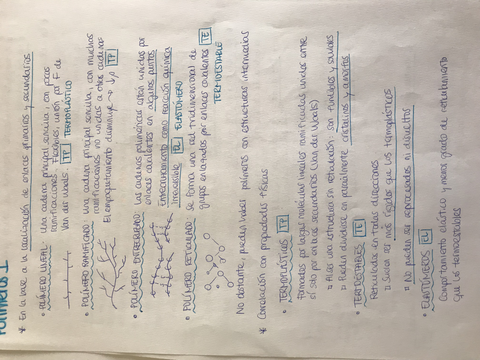 Polímeros 1
* En la base a la localización de enlaces primarios y secundarios
• POLÍMERO LINEAL: Una cadena principal sencilla, con pocas
ramificaciones. Flexibles, unión por F de
Van der Waals. TP TERMOPLÁSTICO
• POLÍMERO RAMIFICADO: una cadena principal sencilla, con muchas
ramificaciones no unidas a otras cadenas
El empaquetamiento disminuye → ↓ρ TP
• POLÍMERO ENTRECRUZADO: Las cadenas poliméricas están unidas por
enlaces covalentes en algunos puntos
Entrecruzamiento como reacción química
irreversible EL ELASTÓMERO
• POLÍMERO RETICULADO: Se forma una red tridimensional de
grupos orientados por enlaces covalentes TE
TERMOESTABLE
No obstante, pueden haber polímeros con estructuras intermedias
* Correlación con propiedades físicas
• TERMOPLÁSTICOS TP
formados por largas moléculas lineales ramificadas unidas entre
sí solo por enlaces secundarios (Van der Waals)
Alias una estructura sin reticulación, son fundibles y solubles
Pueden dividirse en parcialmente cristalinos y amorfos
• TERMOESTABLES TE
Reticulados en todas direcciones
Suelen ser más rígidos que los termoplásticos
No pueden ser reprocesados ni disueltos
• ELASTÓMEROS EL
Comportamiento elástico y menos grado de reticulamiento
que los termoestables